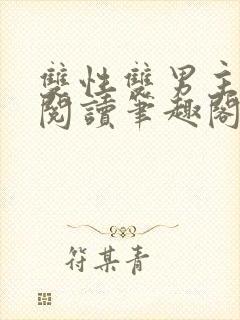 雙性雙男主
閱讀筆趣閣
符某青